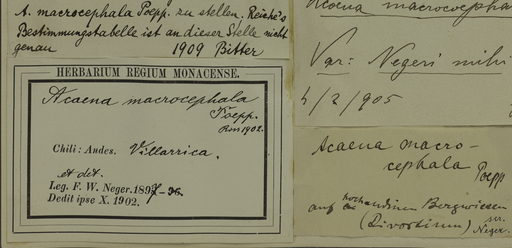 A. macrocephala Poepp. zu stellen. Reiche's
Bestimmungstabelle ist an dieser Stelle nicht
genau 1909 Bitter
HERBARIUM REGIUM MONACENSE.
Acaena macrocephala
Poepp.
Chili: Andes. Villarrica.
et det.
Leg. F. W. Neger. 1897
Dedit ipse X. 1902.
Acaena macrocepha
Var: Negeri mihi
4/2/905
Acaena macro-
cephala Poepp
auf hochandinen Bergwiesen
(Divortium)
Neger.